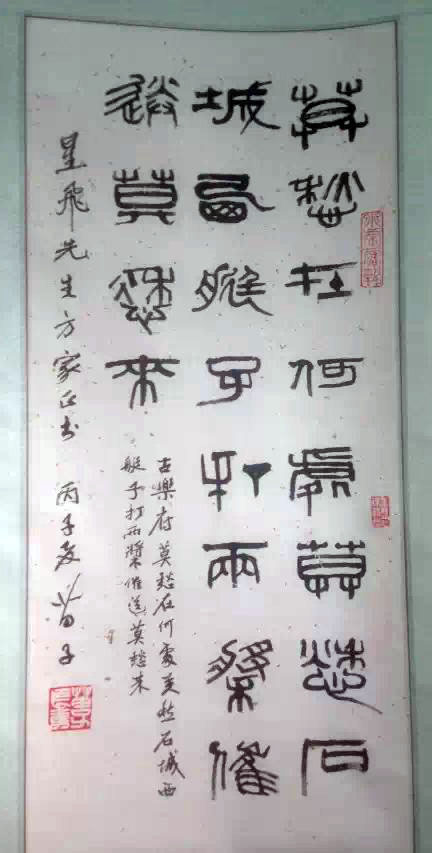 莫愁在何處莫愁石
城西艇子打兩槳催
送莫愁來
古樂府 莫愁在何處莫愁石城西
艇子打兩槳催送莫愁来
星飛先生方家正书 丙子夏 苗子